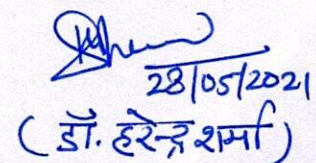 28/05/2021
(डॉ. हरेन्द्र शर्मा)